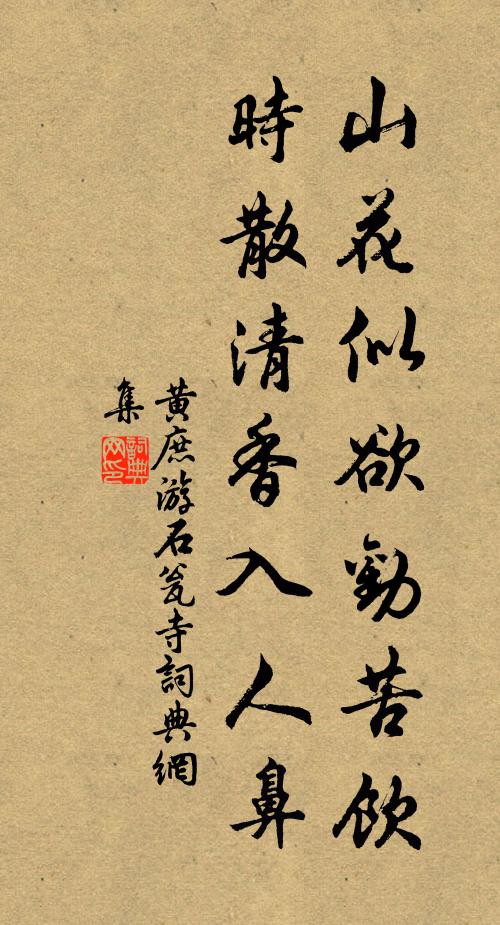 山花似欲勸苦飲
時散清香入人鼻
黃庶游石瓮寺詞典網
集
詞典
网印